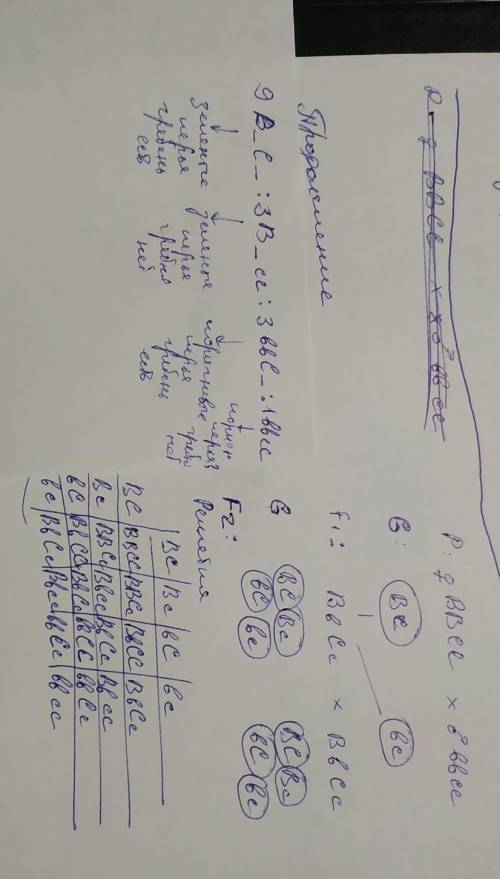 P: ♀ BBCC × ♂ bbcc
G: BC bc
F1: BbCc × BbCc
G BC Bc BC Bc
bC bc bC bc
F2:
Решетка
BC Bc bC bc
BC BBCC BBCc BbCC BbCc
Bc BBCc BBcc BbCc Bbcc
bC BbCC BbCc bbCC bbCc
bc BbCc Bbcc bbCc bbcc
9 B_C_ : 3 B_cc : 3 bbC_ : 1 bbcc
зеленые перья гребень есть
зеленые перья гребня нет
коричневые перья гребень есть